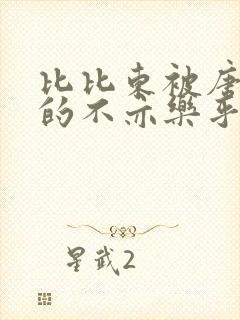 比比东被唐
的不亦乐乎
星武2